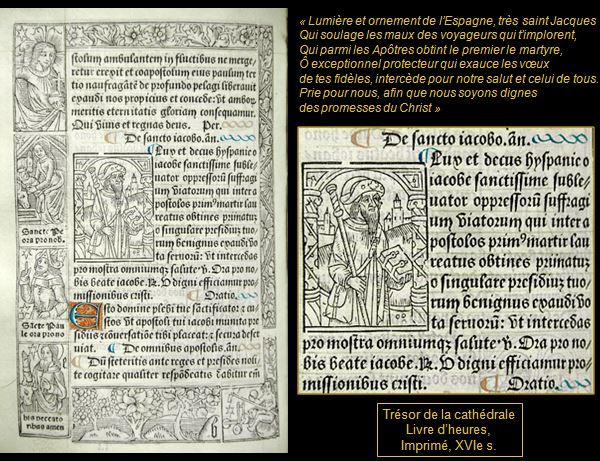 « Lumière et ornement de l'Espagne, très saint Jacques
Qui soulage les maux des voyageurs qui t'implorent,
Qui parmi les Apôtres obtint le premier le martyre,
Ô exceptionnel protecteur qui exauce les vœux
de tes fidèles, intercède pour notre salut et celui de tous.
Prie pour nous, afin que nous soyons dignes
des promesses du Christ »
stolum ambulantem in fluctibus ne merge
retur erexit et coapostolum eius paulum ter
tio naufragātē de profundo pelagi liberavit
exaudi nos propicius et concede: vt amborū
meritis eternitatis gloriam consequamur.
Qui viuis et regnas deus. Per.
De sancto iacobo. añ.
Lux et decus hyspanie o
iacobe sanctissime suble
uator oppressorū suffragi
um viatorum qui inter a
postolos prim9 martir lau
reatus obtines primatū
o singulare presidiuȝ tuo
rum benignus exaudi vo
ta seruorū: vt intercedas
pro mostra omniumqȝ salute. ℣. Ora pro no
bis beate iacobe. ℟. Ut digni efficiamur pro
missionibus cristi. Oratio.
Esto domine plebi tue sactificator z cu
stos vt apostoli tui iacobi munita pre
sidijs z conuersatiōe tibi placeat: z secura deser
uiat. De omnibus apostolis. añ.
Dū steteritis ante reges et presides noli
te cogitare qualiter respōdeatis dabitur em̄
Sancte Pe
ora pro nob.
Sācte Pau
le ora pro no
his peccato
ribus amen
De sancto iacobo. añ.
Lux et decus hyspanie o
iacobe sanctissime suble
uator oppressorū suffragi
um viatorum qui inter a
postolos prim9 martir lau
reatus obtines primatū
o singulare presidiuȝ tuo
rum benignus exaudi vo
ta seruorū: vt intercedas
pro mostra omniumqȝ salute. ℣. Ora pro no
bis beate iacobe. ℟. Ut digni efficiamur pro
missionibus cristi. Oratio.
Trésor de la cathédrale
Livre d'heures,
Imprimé, XVIe s.